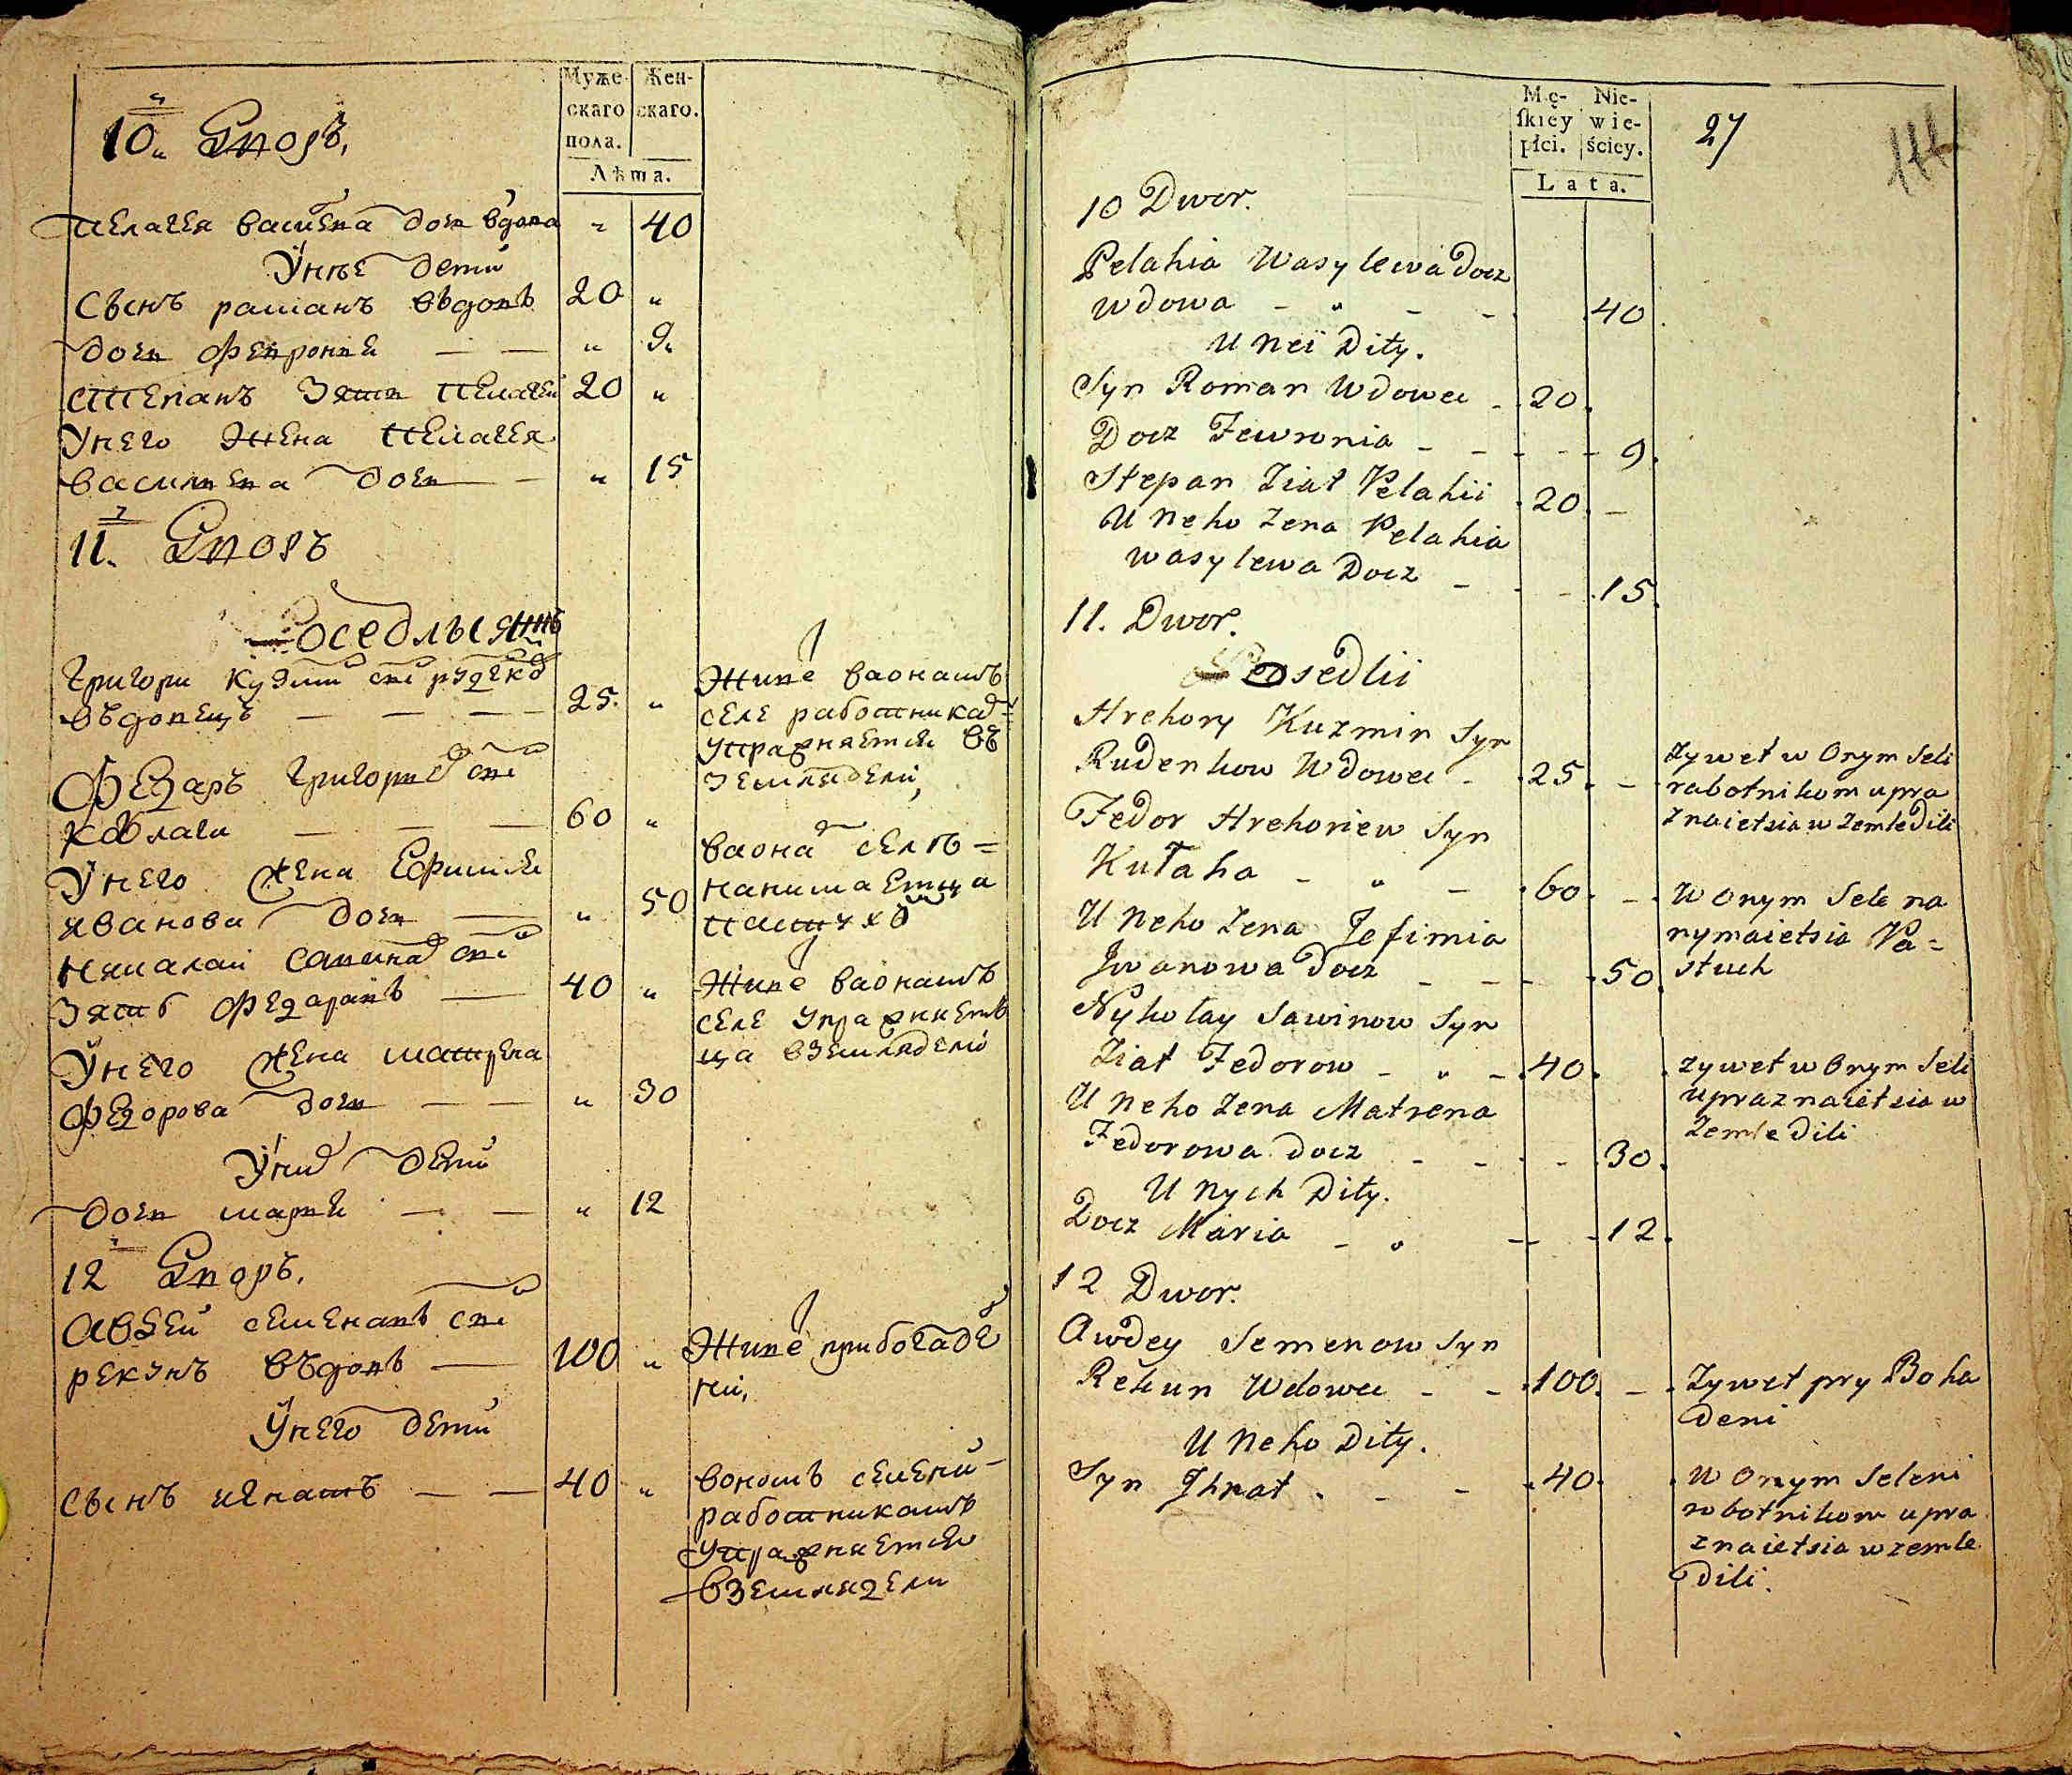 Муже-
скаго
пола.
Жен-
скаго.
Лѣта.
10й Дворъ,
Пелагея василева доч вдова " 40
У нее дети
Сынъ раманъ въдовъ 20 "
доч феврония — — " 9
Степанъ зять Пелагеи 20 "
У него жена Пелагея
василева доч — " 15
11. Дворъ
оседлыя
Григори Кузмин сн руденков
въдовецъ — — — 25. "
Живе ваономъ
селе работником
упражняется въ
земляделі,
Федаръ Григорев сн
— — — 60 "
У него жена Ефимия
иванова доч — " 50
ваном селъ =
нанимаетца
пастухо
Николай Савинов сн
зять Федаравъ — 40 "
Живе ваономъ
селе упражнает
ца вземляделі
У него жена матрена
Федорова доч — — " 30
У них дети
доч мария — — " 12
12 Дворъ,
Авдей семенавъ сн
рекунъ въдовъ — 100 "
Живе при богаде
ні,
У него дети
Сынъ игнатъ — — 40 "
воном селени-
работникомъ
упражняется
вземлядели
Mę-
skiey
płci.
Nie-
wie-
ściey.
Lata.
27
10 Dwor.
Pelahia Wasylewa Docz
wdowa - " - - 40
U neï Dity.
Syn Roman Wdowec - 20
Docz Fewronia - - - - 9.
Stepan Ziat Pelahii 20 -
U neho Zena Pelahia
wasylewa Docz - - - 15.
11. Dwor.
osedlii
Hrehory Kuzmin Syn
Rudenkow Wdowec - 25. -
Zywet w Onym Seli
rabotnikom upra
znaietsia w Zemledili
Fedor Hrehoriew Syn
Kułaha - " - 60. -
U Neho Zena Jefimia
Jwanowa Docz - - - 50
W onym Sele na
nymaietsia Pa=
stuch
Nykołay Sawinow Syn
Ziat Fedorow - " - 40.
Zywet w Onym Seli
upraznaietsia w
Zemledili
U Neho Zena Matrena
Fedorowa Docz - - - 30.
U Nych Dity.
Docz Maria - " - - 12.
12 Dwor.
Awdey Semenow Syn
Rekun Wdowec - - 100. -
Zywet pry Boha
deni
U Neho Dity.
Syn Jhnat . - - 40.
W Onym Seleni
robotnikom upra
znaietsia w zemle
dili.